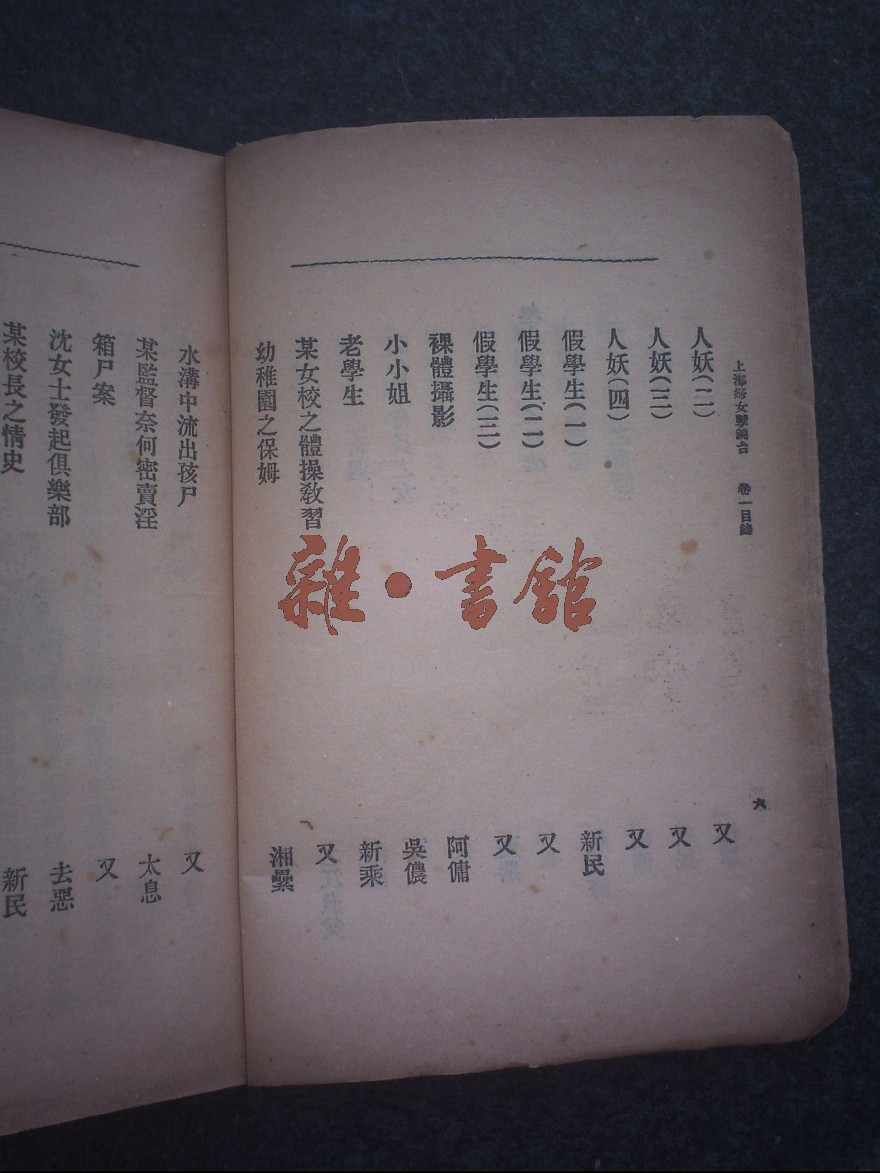 上海婦女孽鏡台 卷一目錄 六
人妖(二) 又
人妖(三) 又
人妖(四) 又
假學生(一) 新民
假學生(二) 又
假學生(三) 又
裸體攝影 阿傭
小小姐 吳儂
老學生 新乘
某女校之體操教習 又
幼稚園之保姆 湘纍
水溝中流出孩尸 又
某監督奈何密賣淫 太息
箱尸案 又
沈女士發起俱樂部 去惡
某校長之情史 新民
雜·書館